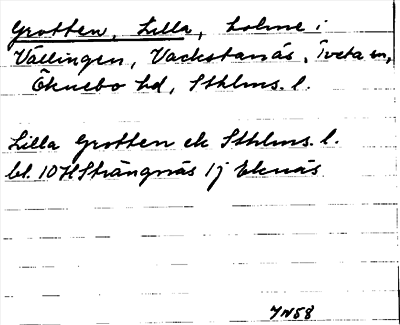 Grotten, Lilla, holme i
Vällingen, Vackstanäs, Tveta sn,
Öknebo hd, Sthlms. l.
Lilla Grotten ek Sthlms. l.
bl. 10H Strängnäs 1j Eknäs
JN58